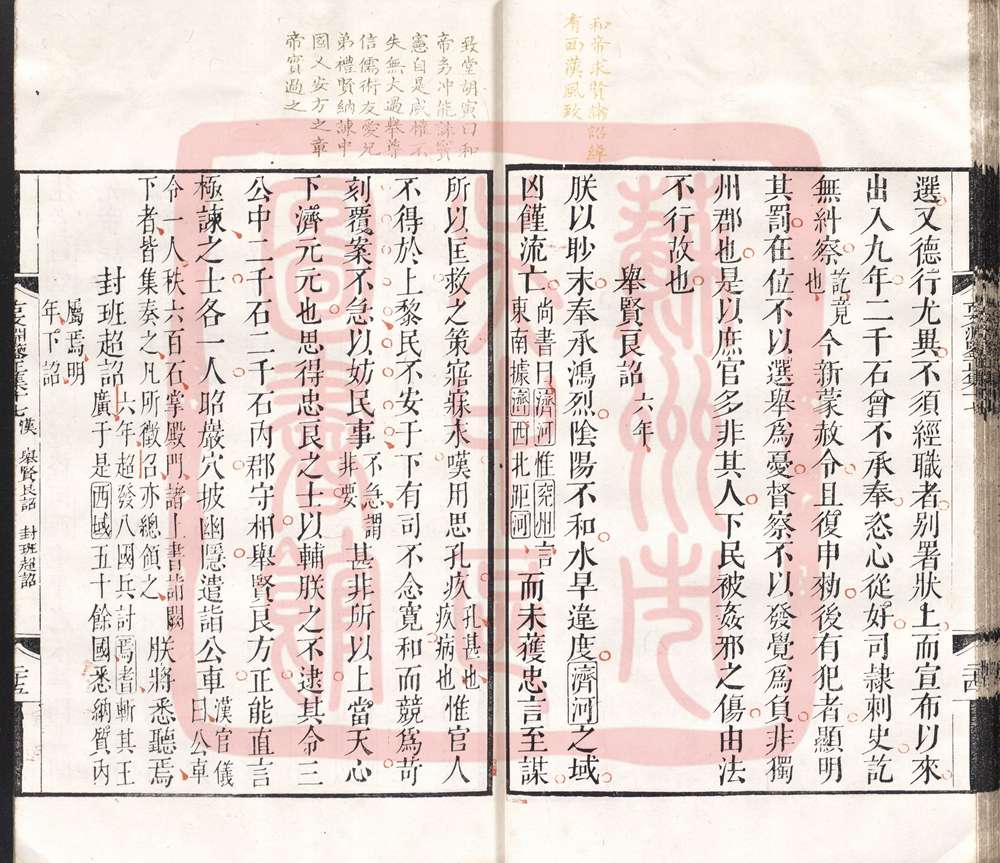 和帝求賢諭詔綽
有西漢風致
選又德行尤異不須經職者别署狀上而宣布以來
出入九年二千石曾不承奉恣心從好司隷刺史訖
無糾察訖竟也今新蒙赦令且復申勑後有犯者顯明
其罰在位不以選舉爲憂督察不以發覺爲負非獨
州郡也是以庶官多非其人下民被姦邪之傷由法
不行故也
舉賢良詔六年
朕以眇末奉承鴻烈陰陽不和水旱違度濟河之域
凶饉流亡尚書曰濟河惟兖州言東南據濟西北距河而未獲忠言至謀
致堂胡寅曰和
帝㓜冲能誅竇
憲自是威權不
失無大過舉尊
信儒術友愛兄
弟禮賢納諫中
國乂安方之章
帝實過之
所以匡救之策寤寐永嘆用思孔疚孔甚也疚病也惟官人
不得於上黎民不安于下有司不念寬和而競爲苛
刻覆案不急以妨民事不急謂非要甚非所以上當天心
下濟元元也思得忠良之士以輔朕之不逮其令三
公中二千石二千石內郡守相舉賢良方正能直言
極諫之士各一人昭巖穴披幽隱遣詣公車漢官儀曰公車
令一人秩六百石掌殿門諸上書詣闕下者皆集奏之凡所徵召亦總領之朕將悉聽焉
封班超詔六年超發八國兵討焉耆斬其王廣于是西域五十餘國悉納質內
屬焉明年下詔
漢 舉賢良詔 封班超詔